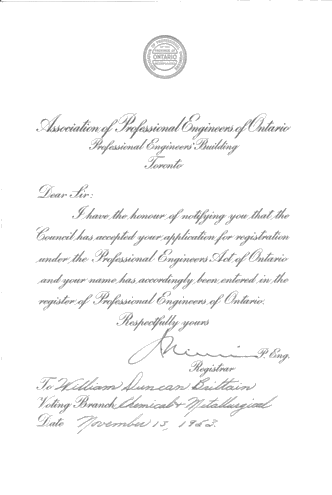 ONTARIO
Association of Professional Engineers of Ontario
Professional Engineers Building
Toronto
Dear Sir:
I have the honour of notifying you that the
Council has accepted your application for registration
under the Professional Engineers Act of Ontario
and your name has accordingly been entered in the
register of Professional Engineers of Ontario.
Respectfully yours
P. Eng.
Registrar
To William Duncan Brittain
Voting Branch Chemical & Metallurgical
Date November 13, 1962.